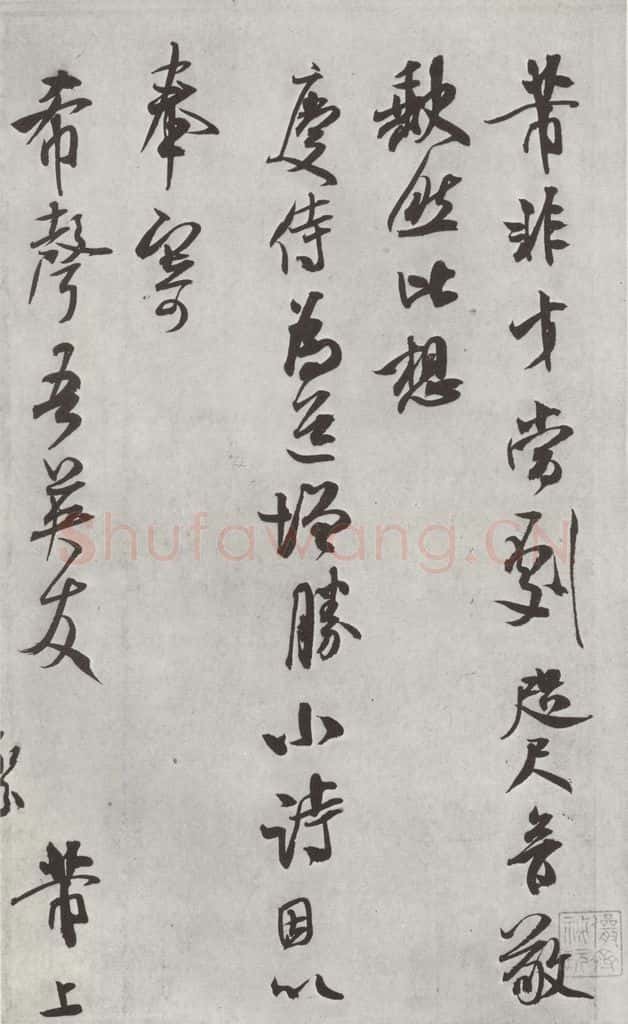 芾非才當劇咫尺音敬
缺然比想
慶侍為道增勝小詩因以
奉寄
希聲吾英友
芾上
Shufawang.CN